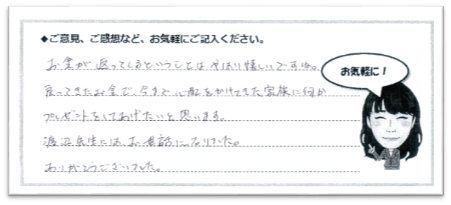 ◆ご意見、ご感想など、お気軽にご記入ください。
お金が返ってくるということは やはり嬉しいですね。
戻ってきたお金で、今まで心配をかけてきた家族に何か
プレゼントをしてあげたいと思います。
渡辺先生には、お世話になりました。
ありがとうございました。
お気軽に！